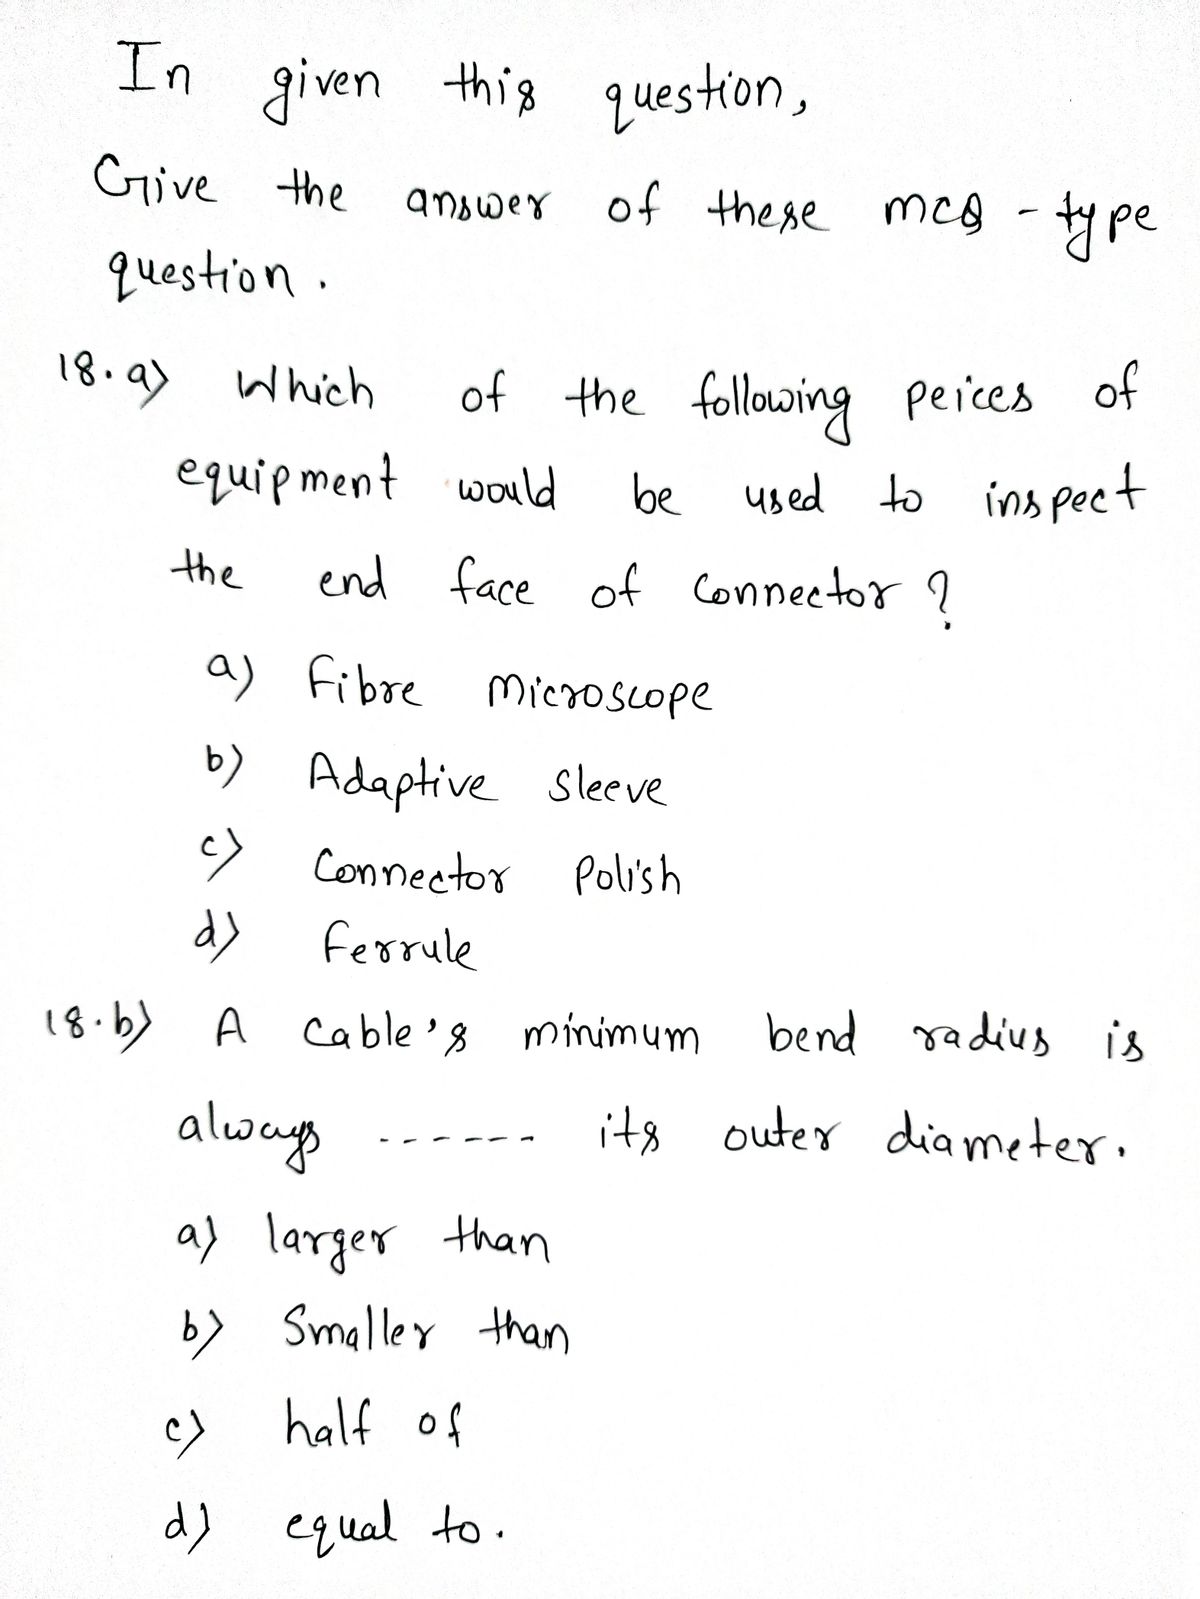 In given this question,
Give the answer of these mcQ - type
question.
18. a) Which of the following peices of
equipment would be used to inspect
the end face of connector ?
a) Fibre Microscope
b) Adaptive sleeve
c) Connector Polish
d) Ferrule
18. b) A Cable's minimum bend radius is
always ------ its outer diameter.
a) larger than
b) Smaller than
c) half of
d) equal to.